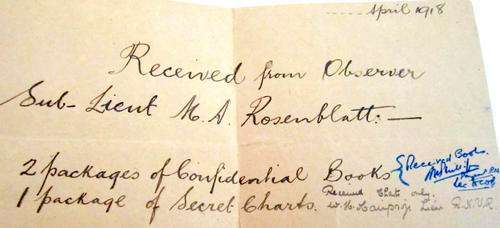 April 1918
Received from Observer
Sub-Lieut M. A. Rosenblatt:—
2 packages of Confidential Books
{Received Books.
1 package of Secret Charts.
Received Charts only.
W. H. Lieut R.N.V.R.